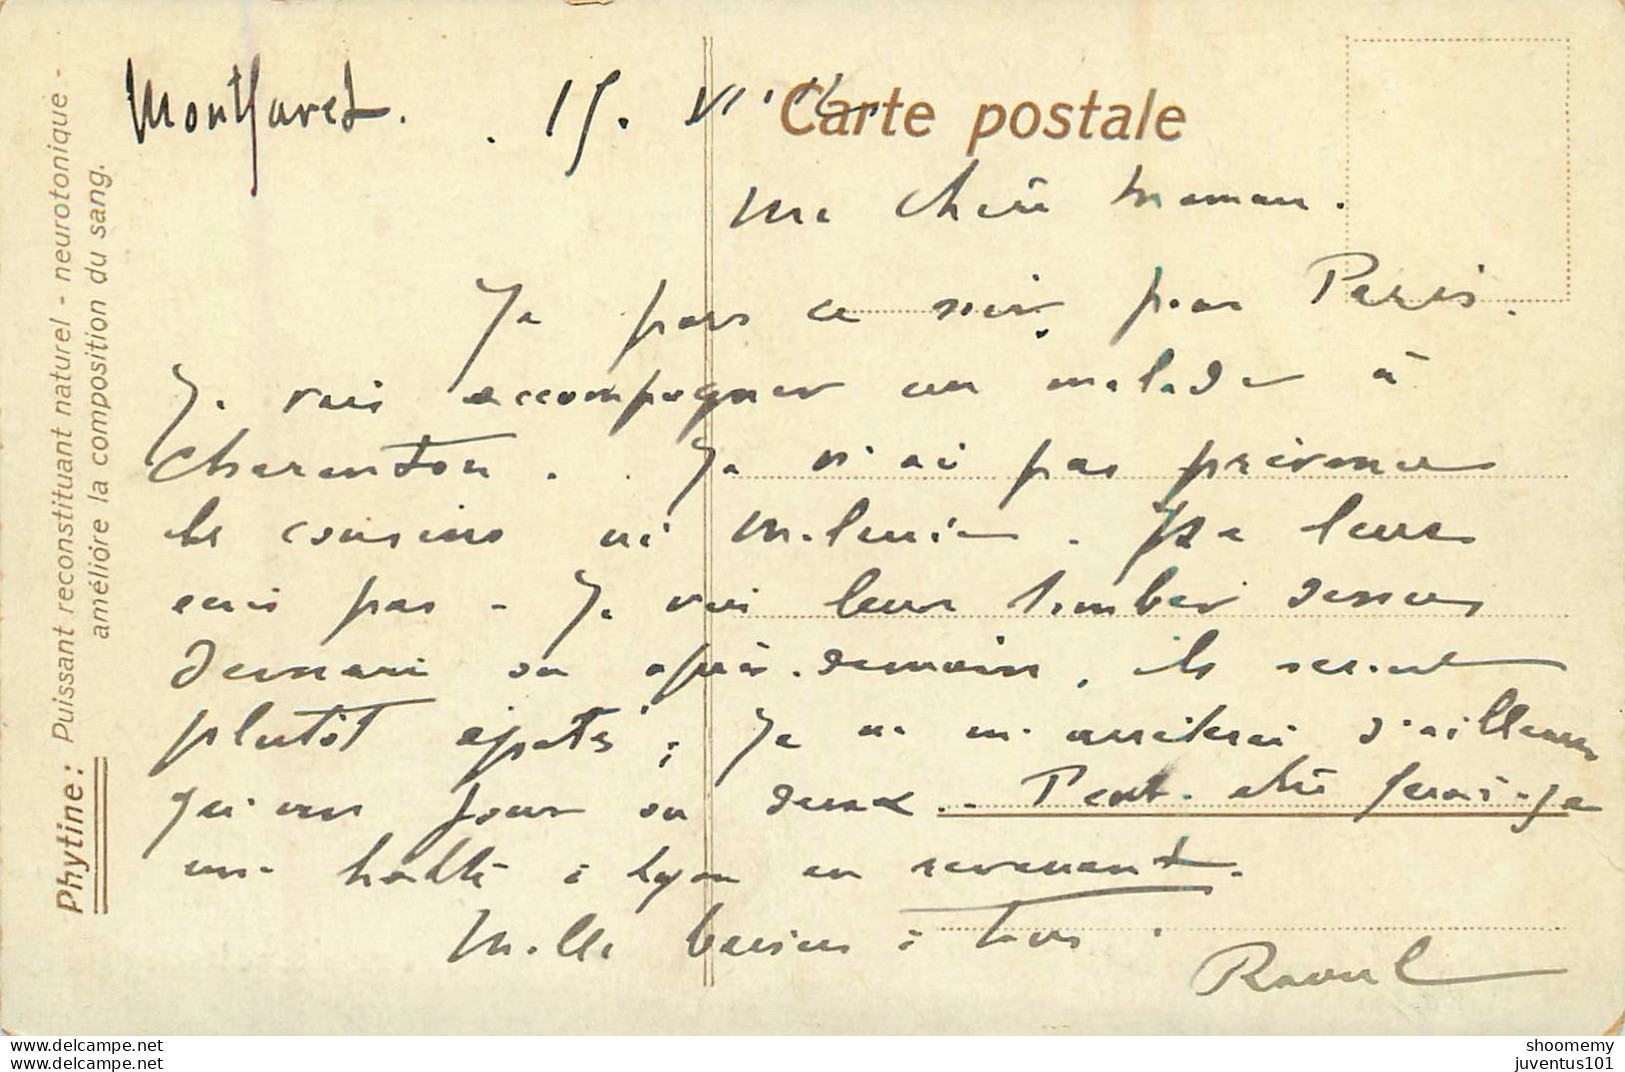 Montfavet. . 15. VI.
Carte postale
Ma chère Maman.
Je pars ce soir pour Paris.
Je vais accompagner un malade à
Charenton. . Je n'ai pas prévenu
les cousins ni Mélanie. Je leur
écris pas - Je vais leur tomber dessus
demain ou après-demain, ils seront
plutôt épatés ; Je ne m'arrêterai d'ailleurs
qu'un jour ou deux. . Peut-être ferai-je
une halte à Lyon en revenant.
Mille baisers à tous.
Raoul
Phytine: Puissant reconstituant naturel - neurotonique -
améliore la composition du sang.
www.delcampe.net
www.delcampe.net
shoomemy
juventus101